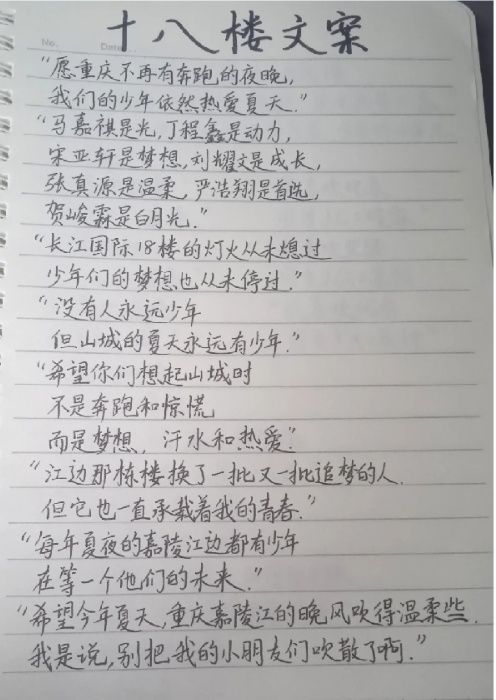 No.
Date
十八楼文案
“愿重庆不再有奔跑的夜晚,
我们的少年依然热爱夏天.”
“马嘉祺是光,丁程鑫是动力,
宋亚轩是梦想,刘耀文是成长,
张真源是温柔,严浩翔是首选,
贺峻霖是白月光.”
“长江国际18楼的灯火从未熄过
少年们的梦想也从未停过.”
“没有人永远少年
但山城的夏天永远有少年.”
“希望你们想起山城时
不是奔跑和惊慌
而是梦想,汗水和热爱.”
“江边那栋楼换了一批又一批追梦的人.
但它也一直承载着我的青春.”
“每年夏夜的嘉陵江边都有少年
在等一个他们的未来.”
“希望今年夏天,重庆嘉陵江的晚风吹得温柔些.
我是说,别把我的小朋友们吹散了啊.”